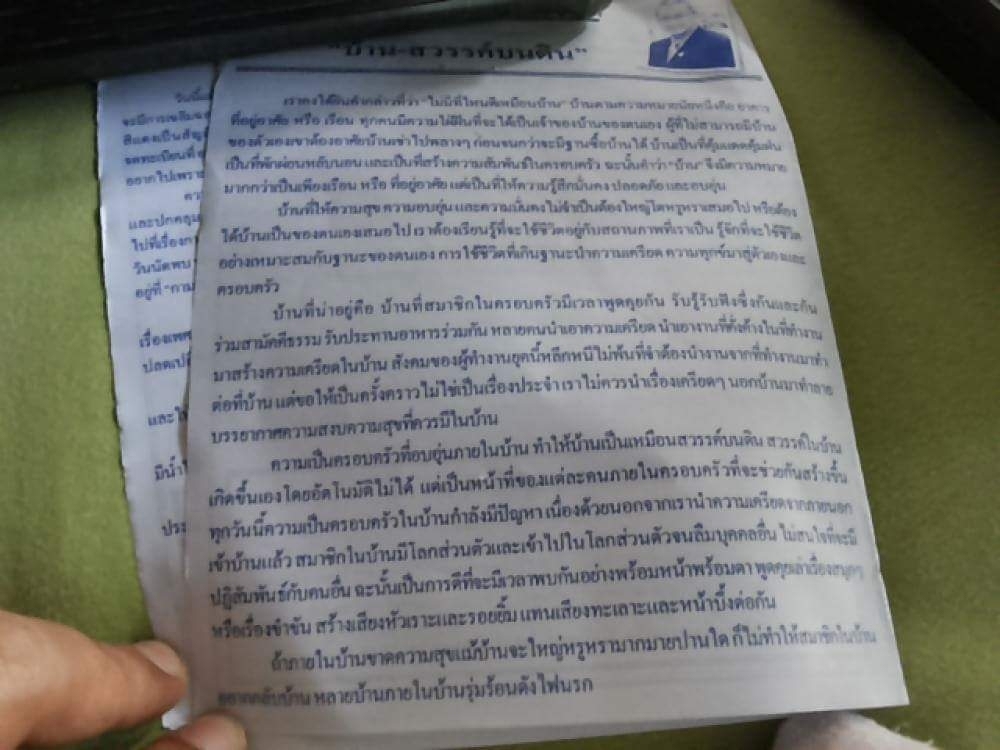 "บ้าน-สวรรค์บนดิน"
เราคงได้ยินคำกล่าวที่ว่า "ไม่มีที่ไหนดีเหมือนบ้าน" บ้านตามความหมายนัยหนึ่งคือ อาคาร
ที่อยู่อาศัย หรือ เรือน ทุกคนมีความใฝ่ฝันที่จะได้เป็นเจ้าของบ้านของตนเอง ผู้ที่ไม่สามารถมีบ้าน
ของตัวเองเขาต้องอาศัยบ้านเช่าไปพลางๆ ก่อนจนกว่าจะมีฐานซื้อบ้านได้ บ้านเป็นที่คุ้มแดดคุ้มฝน
เป็นที่พักผ่อนหลับนอน และเป็นที่สร้างความสัมพันธ์ในครอบครัว ฉะนั้นคำว่า "บ้าน" จึงมีความหมาย
มากกว่าเป็นเพียงเรือน หรือ ที่อยู่อาศัย แต่เป็นที่ให้ความรู้สึกมั่นคง ปลอดภัย และอบอุ่น
บ้านที่ให้ความสุข ความอบอุ่น และความมั่นคงไม่จำเป็นต้องใหญ่โตหรูหราเสมอไป หรือต้อง
ได้บ้านเป็นของตนเองเสมอไป เราต้องเรียนรู้ที่จะใช้ชีวิตอยู่กับสถานภาพที่เราเป็น รู้จักที่จะใช้ชีวิต
อย่างเหมาะสมกับฐานะของตนเอง การใช้ชีวิตที่เกินฐานะนำความเครียด ความทุกข์มาสู่ตัวเองและ
ครอบครัว
บ้านที่น่าอยู่คือ บ้านที่สมาชิกในครอบครัวมีเวลาพูดคุยกัน รับรู้รับฟังซึ่งกันและกัน
ร่วมสามัคคีธรรม รับประทานอาหารร่วมกัน หลายคนนำเอาความเครียด นำเอางานที่คั่งค้างในที่ทำงาน
มาสร้างความเครียดในบ้าน สังคมของผู้ทำงานยุคนี้หลีกหนีไม่พ้นที่จำต้องนำงานจากที่ทำงานมาทำ
ต่อที่บ้าน แต่ขอให้เป็นครั้งคราวไม่ใช่เป็นเรื่องประจำ เราไม่ควรนำเรื่องเครียดๆ นอกบ้านมาทำลาย
บรรยากาศความสงบความสุขที่ควรมีในบ้าน
ความเป็นครอบครัวที่อบอุ่นภายในบ้าน ทำให้บ้านเป็นเหมือนสวรรค์บนดิน สวรรค์ในบ้าน
เกิดขึ้นเองโดยอัตโนมัติไม่ได้ แต่เป็นหน้าที่ของแต่ละคนภายในครอบครัวที่จะช่วยกันสร้างขึ้น
ทุกวันนี้ความเป็นครอบครัวในบ้านกำลังมีปัญหา เนื่องด้วยนอกจากเรานำความเครียดจากภายนอก
เข้าบ้านแล้ว สมาชิกในบ้านมีโลกส่วนตัวและเข้าไปในโลกส่วนตัวจนลืมบุคคลอื่น ไม่สนใจที่จะมี
ปฏิสัมพันธ์กับคนอื่น ฉะนั้นเป็นการดีที่จะมีเวลาพบกันอย่างพร้อมหน้าพร้อมตา พูดคุยเล่าเรื่องสนุกๆ
หรือเรื่องขำขัน สร้างเสียงหัวเราะและรอยยิ้ม แทนเสียงทะเลาะและหน้าบึ้งต่อกัน
ถ้าภายในบ้านขาดความสุขแม้บ้านจะใหญ่หรูหรามากมายปานใด ก็ไม่ทำให้สมาชิกในบ้าน
อยากกลับบ้าน หลายบ้านภายในบ้านรุ่มร้อนดังไฟนรก